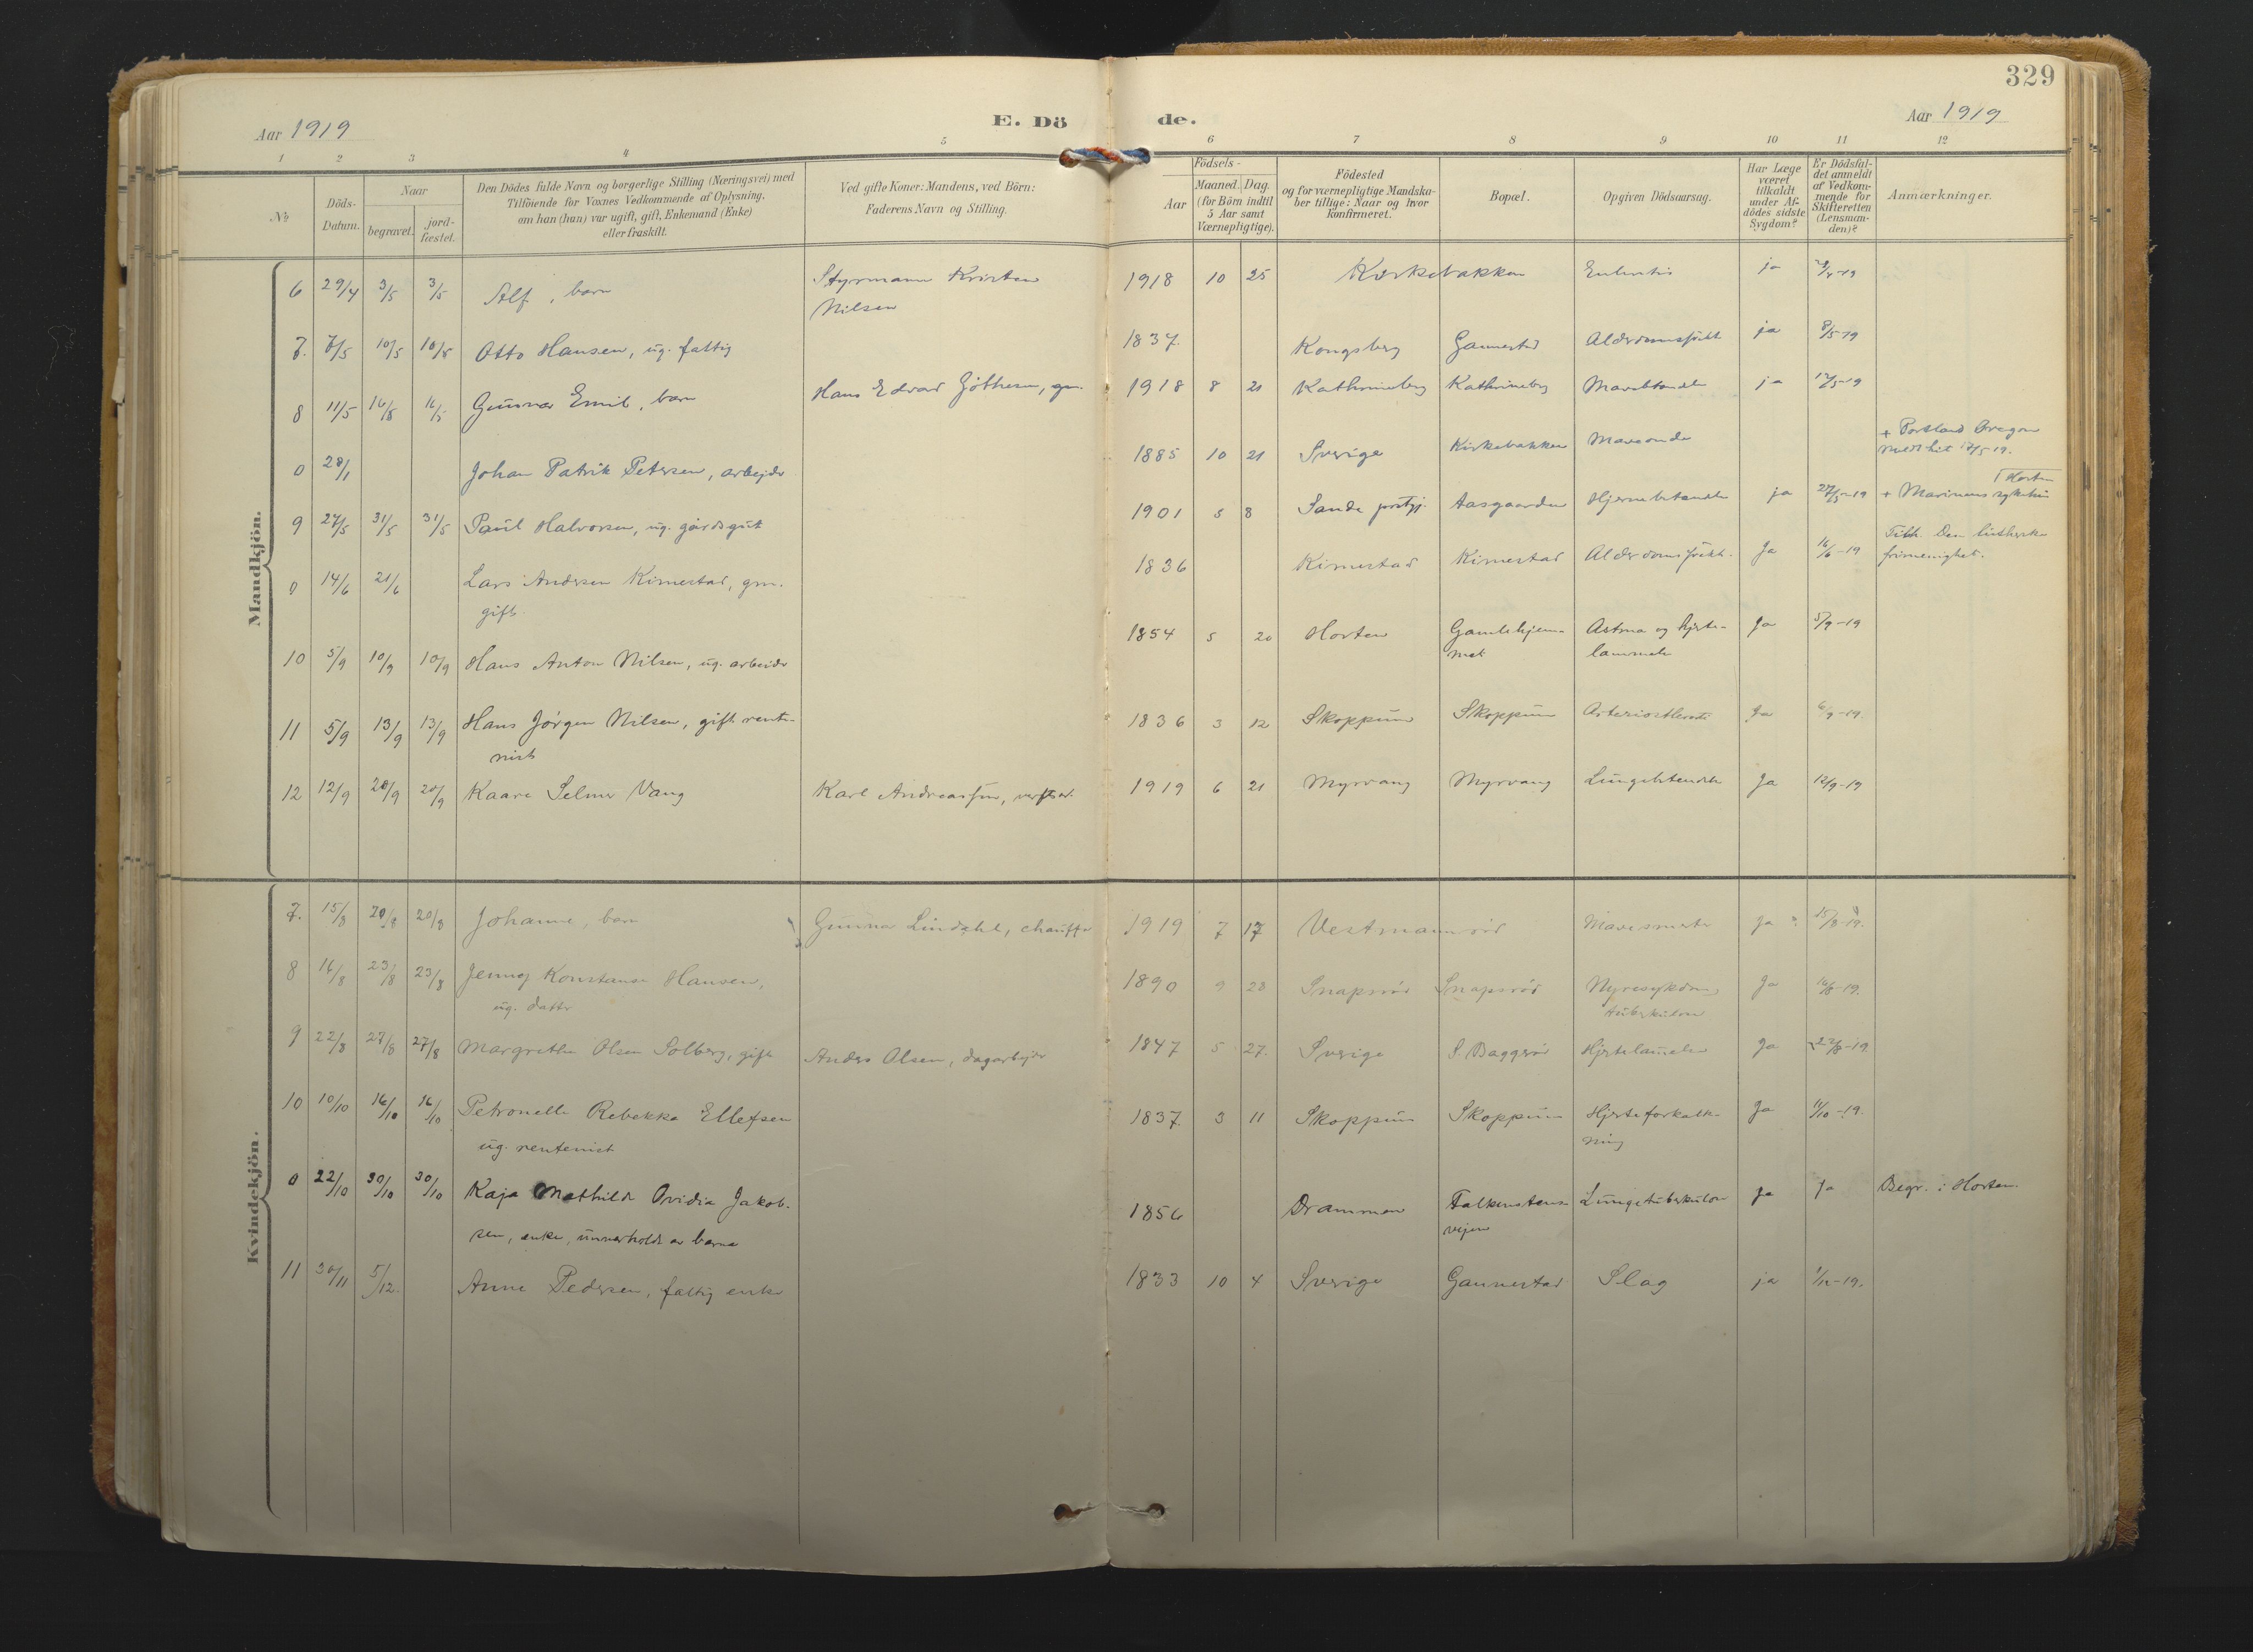 329
Aar 1919
E. Dö
de.
Aar 1919
1 2 3 4 5
6 7 8 9 10 11 12
No
Döds-
Datum.
Naar
begravet.
jord-
fæstet.
Den Dödes fulde Navn og borgerlige Stilling (Næringsvei) med
Tilföiende for Voxnes Vedkommende af Oplysning,
om han (hun) var ugift, gift, Enkemand (Enke)
eller fraskilt.
Ved gifte Koner: Mandens, ved Börn:
Faderens Navn og Stilling.
Födsels-
Aar
Maaned. Dag.
(for Börn indtil
5 Aar samt
Værnepligtige).
Födested
og for værnepligtige Mandska-
ber tillige: Naar og hvor
konfirmeret.
Bopæl.
Opgiven Dödsaarsag.
Har Læge
været
tilkaldt
under Af-
dödes sidste
Sygdom?
Er Dödsfal-
det anmeldt
af Vedkom-
mende for
Skifteretten
(Lensman-
den)?
Anmærkninger.
Mandkjön.
6 29/4 3/5 3/5 Alf, barn Styrmann Kristen
Nilsen
1918 10 25 Kirkebakken ja
7. 7/5 10/5 10/5 Otto Hansen, ug. fattig 1837. Kongsberg Gannestad ja 8/5-19
8 11/5 16/5 16/5 Gunnar Emil, barn Hans Edvard gm. 1918 8 21 Kathrineberg Kathrineberg ja 12/5-19
0 28/1 Johan Patrik Petersen, arbejder 1885 10 21 Sverige Kirkebakken Maveonde
+ Portland Oregon
meldt hit 17/5 19.
9 27/5 31/5 31/5 Paul Halvorsen, ug. gårdsgut 1901 5 8 Sande prstgj. Aasgaarden Hjernebetændelse ja 27/5-19 + Marinens sykehus
Horten
0 14/6 21/6 Lars Andersen Kirnestad, gm.
gift.
1836 Kirnestad Kirnestad Alderdomssvækk. Ja 16/6-19
Tilh. Den lutherske
frimenighet.
10 5/9 10/9 10/9 Hans Anton Nilsen, ug. arbeider 1854 5 20 Horten Gamlehjem-
met
Astma og hjerte-
lammelse
Ja 5/9-19
11 5/9 13/9 13/9 Hans Jörgen Nilsen, gift rente-
nist
1836 3 12 Skoppum Skoppum Arteriosklerose Ja 6/9-19.
12 12/9 20/9 20/9 Kaare Selmer Vang Karl Andreassen, 1919 6 21 Myrvang Myrvang Lungebetændelse Ja 12/9-19
Kvindekjön.
7. 15/8 20/8 20/8 Johanne, barn Gunnar Lindahl, chauffør 1919 7 17 Vestmannröd Ja 15/8-19.
8 16/8 23/8 23/8 Jenny Konstanse Hansen,
ug. datter
1890 9 28 Snapsröd Snapsröd Nyresykdom,
tuberkulose
Ja 16/8-19.
9 22/8 27/8 27/8 Margrethe Olsen Solberg, gift Anders Olsen, dagarbejder 1847 5 27. Sverige S. Baggeröd Hjertelammelse Ja 22/8-19.
10 10/10 16/10 16/10 Petronelle Rebekka Ellefsen
ug. rentenist
1837. 3 11 Skoppum Skoppum Hjerteforkalk-
ning
Ja 11/10-19.
0 22/10 30/10 30/10 Kaja Mathilde Ovidia Jakob-
sen, enke, underholdt av barna
1856 Drammen Falkenstens-
vejen
Lungetuberkulose Ja Ja Begr. i Horten.
11 30/11 5/12. Anne Pedersen, fattig enke 1833 10 4 Sverige Gannestad Slag ja 1/12-19.